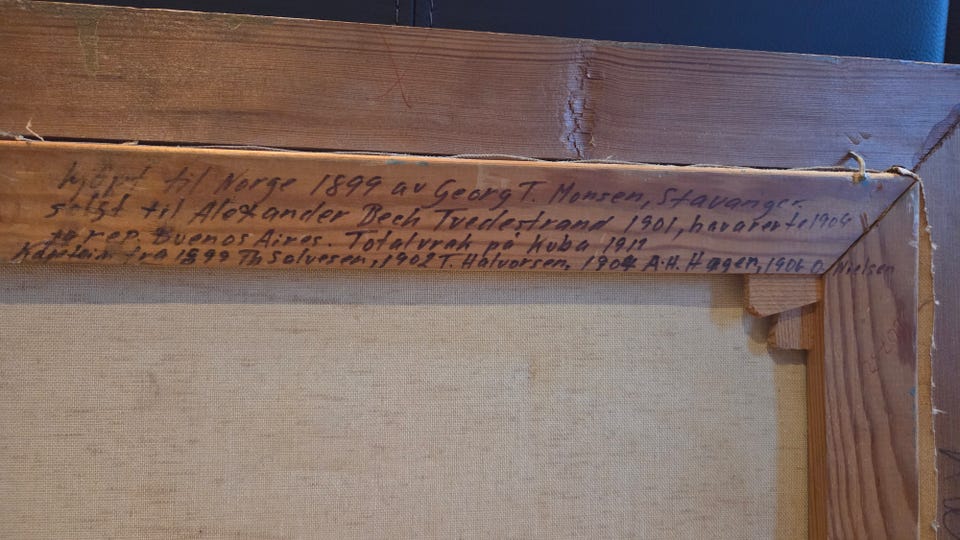 kjøpt til Norge 1899 av Georg T. Monsen, Stavanger.
solgt til Alexander Bech Tvedestrand 1901, havarerte 1904
rep. Buenos Aires. Totalvrak på Kuba 1917
Kaptein fra 1899 Th Solvesen, 1902 T. Halvorsen, 1904 A.H. Hagen, 1906 O. Nielsen